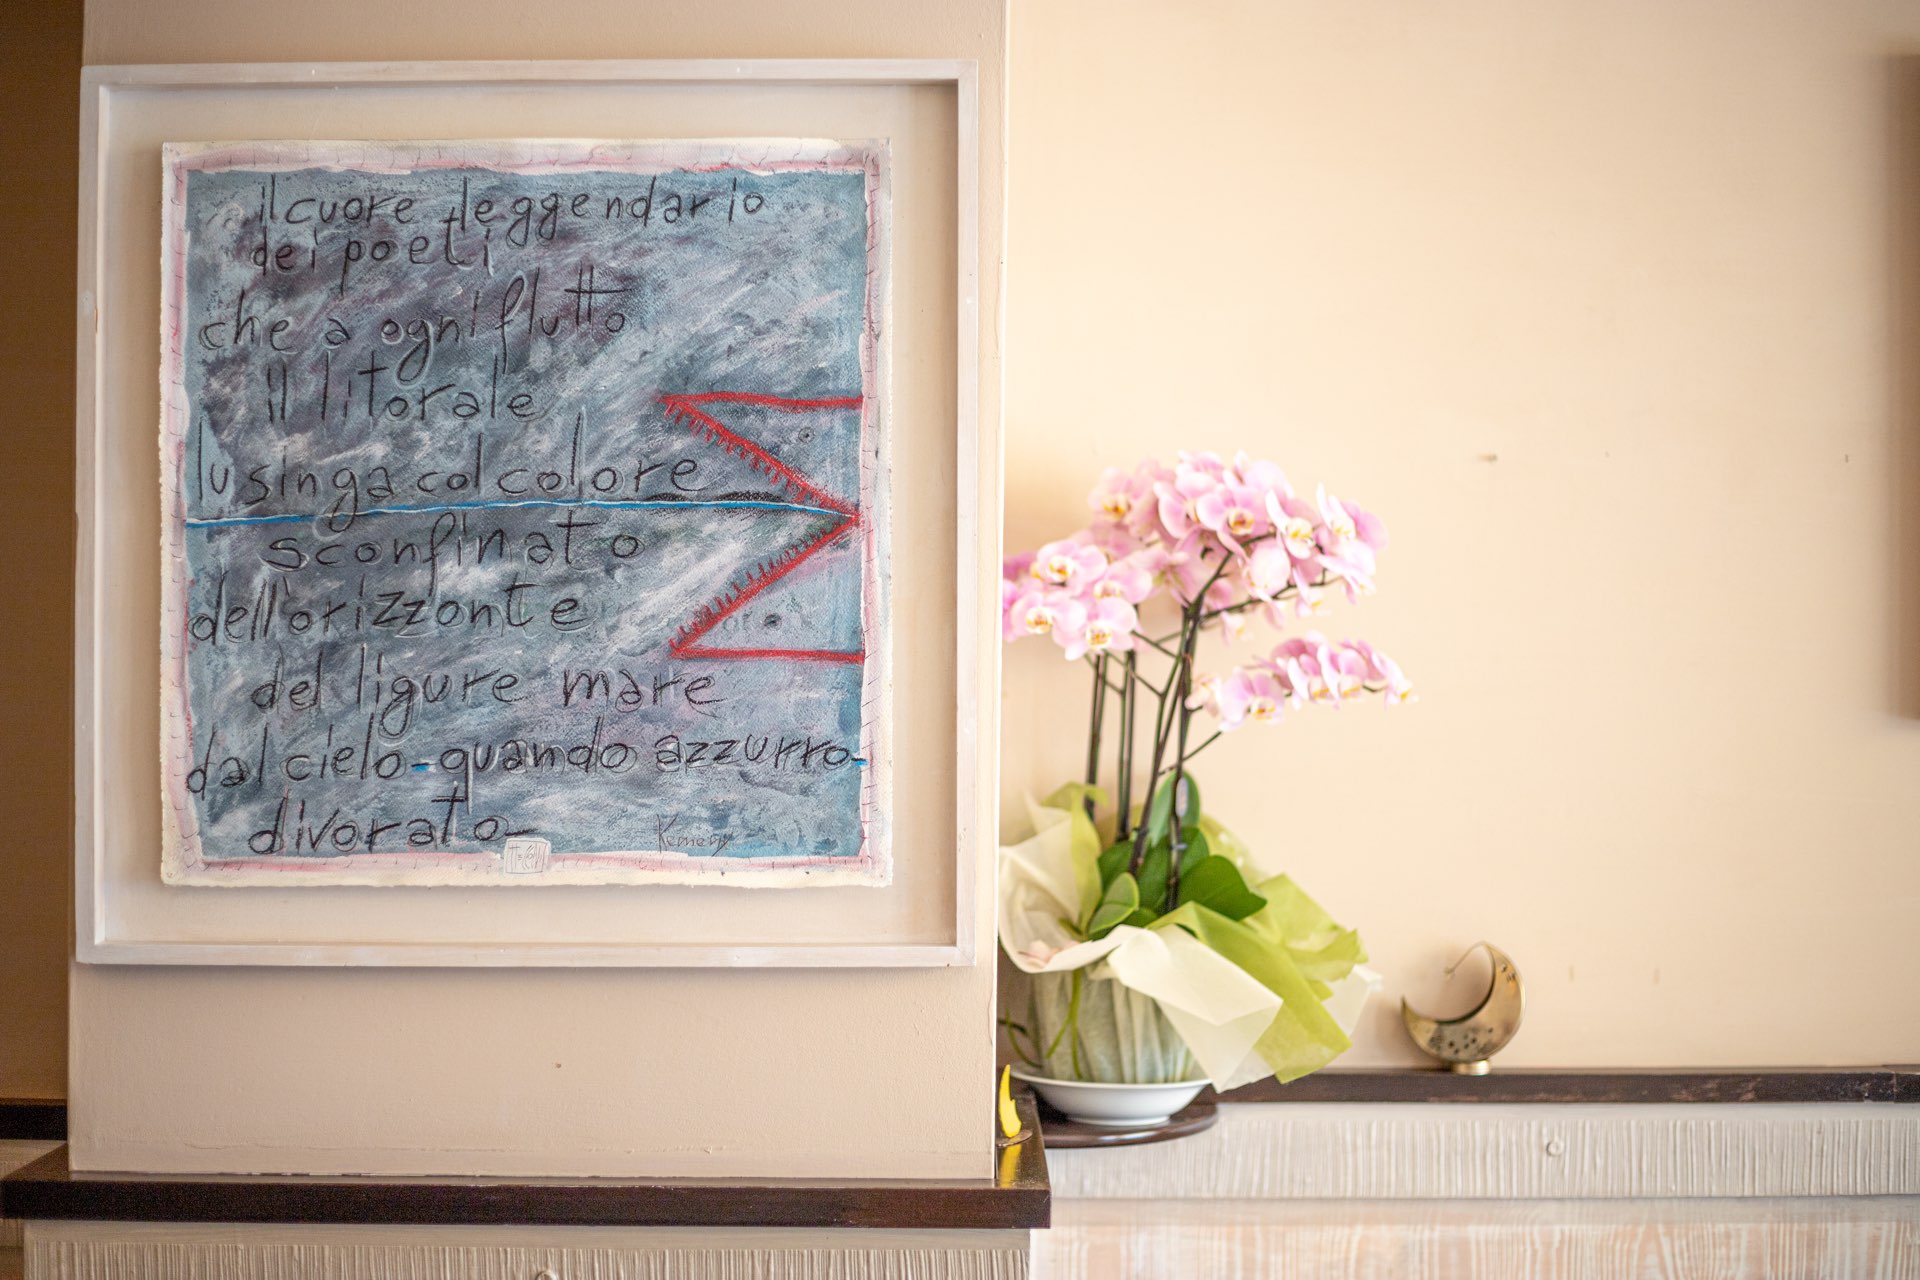 il cuore leggendario
dei poeti
che a ogni flutto
il litorale
lusinga col colore
sconfinato
dell'orizzonte
del ligure mare
dal cielo-quando azzurro-
divorato-